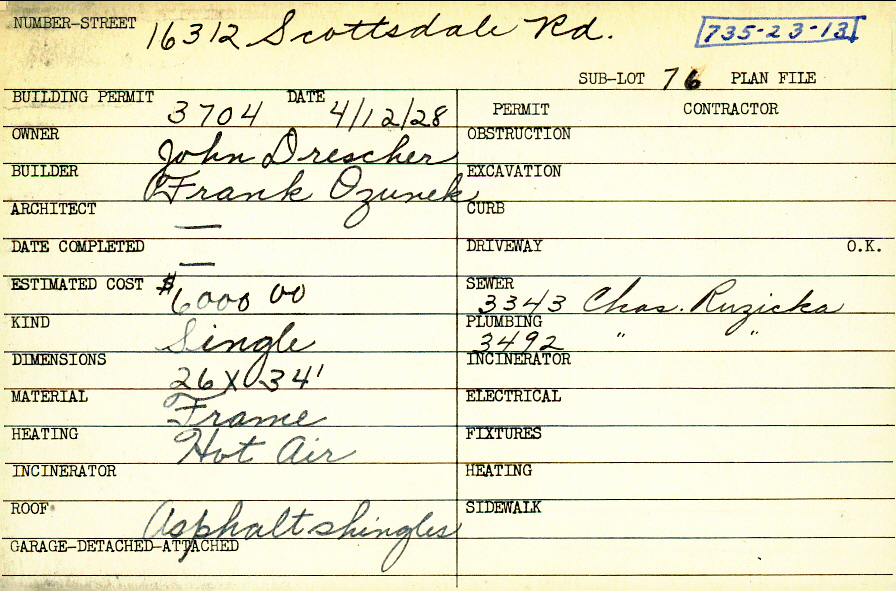 NUMBER-STREET 16312 Scottsdale Rd. 735-23-13
SUB-LOT 76 PLAN FILE
BUILDING PERMIT 3704 DATE 4/12/28
PERMIT CONTRACTOR
OWNER John Drescher
OBSTRUCTION
BUILDER Frank Ozunek
EXCAVATION
ARCHITECT —
CURB
DATE COMPLETED —
DRIVEWAY O.K.
ESTIMATED COST $6000 00
SEWER 3343 Chas. Ruzicka
KIND Single
PLUMBING 3492 " "
DIMENSIONS 26 X 34'
INCINERATOR
MATERIAL Frame
ELECTRICAL
HEATING Hot Air
FIXTURES
INCINERATOR
HEATING
ROOF Asphalt shingles
SIDEWALK
GARAGE-DETACHED-ATTACHED